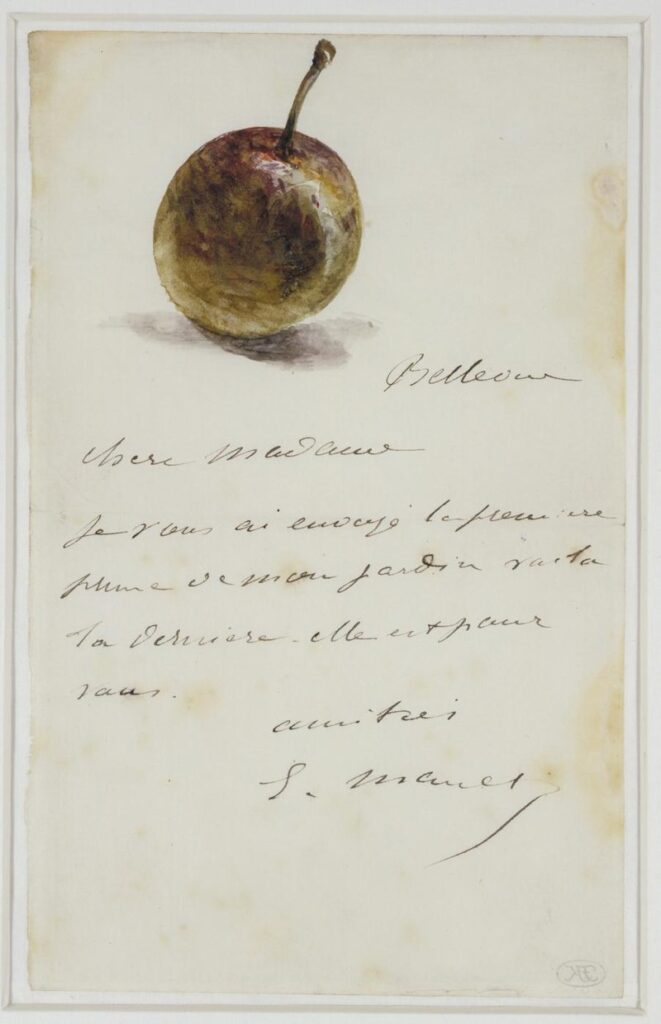 Bellevue
chere Madame
je vous ai envoyé la premiere
prune de mon jardin voila
la derniere. elle est pour
vous.
amitiés
E. Manet